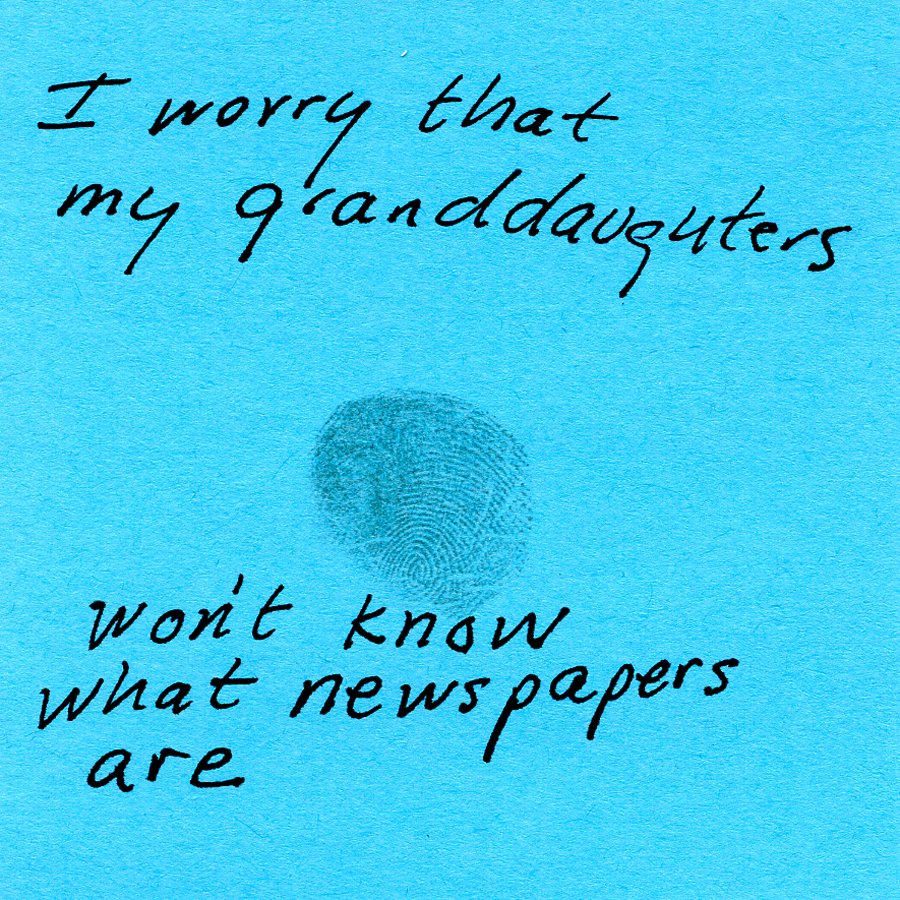 I worry that
my granddaughters
won't know
what newspapers
are